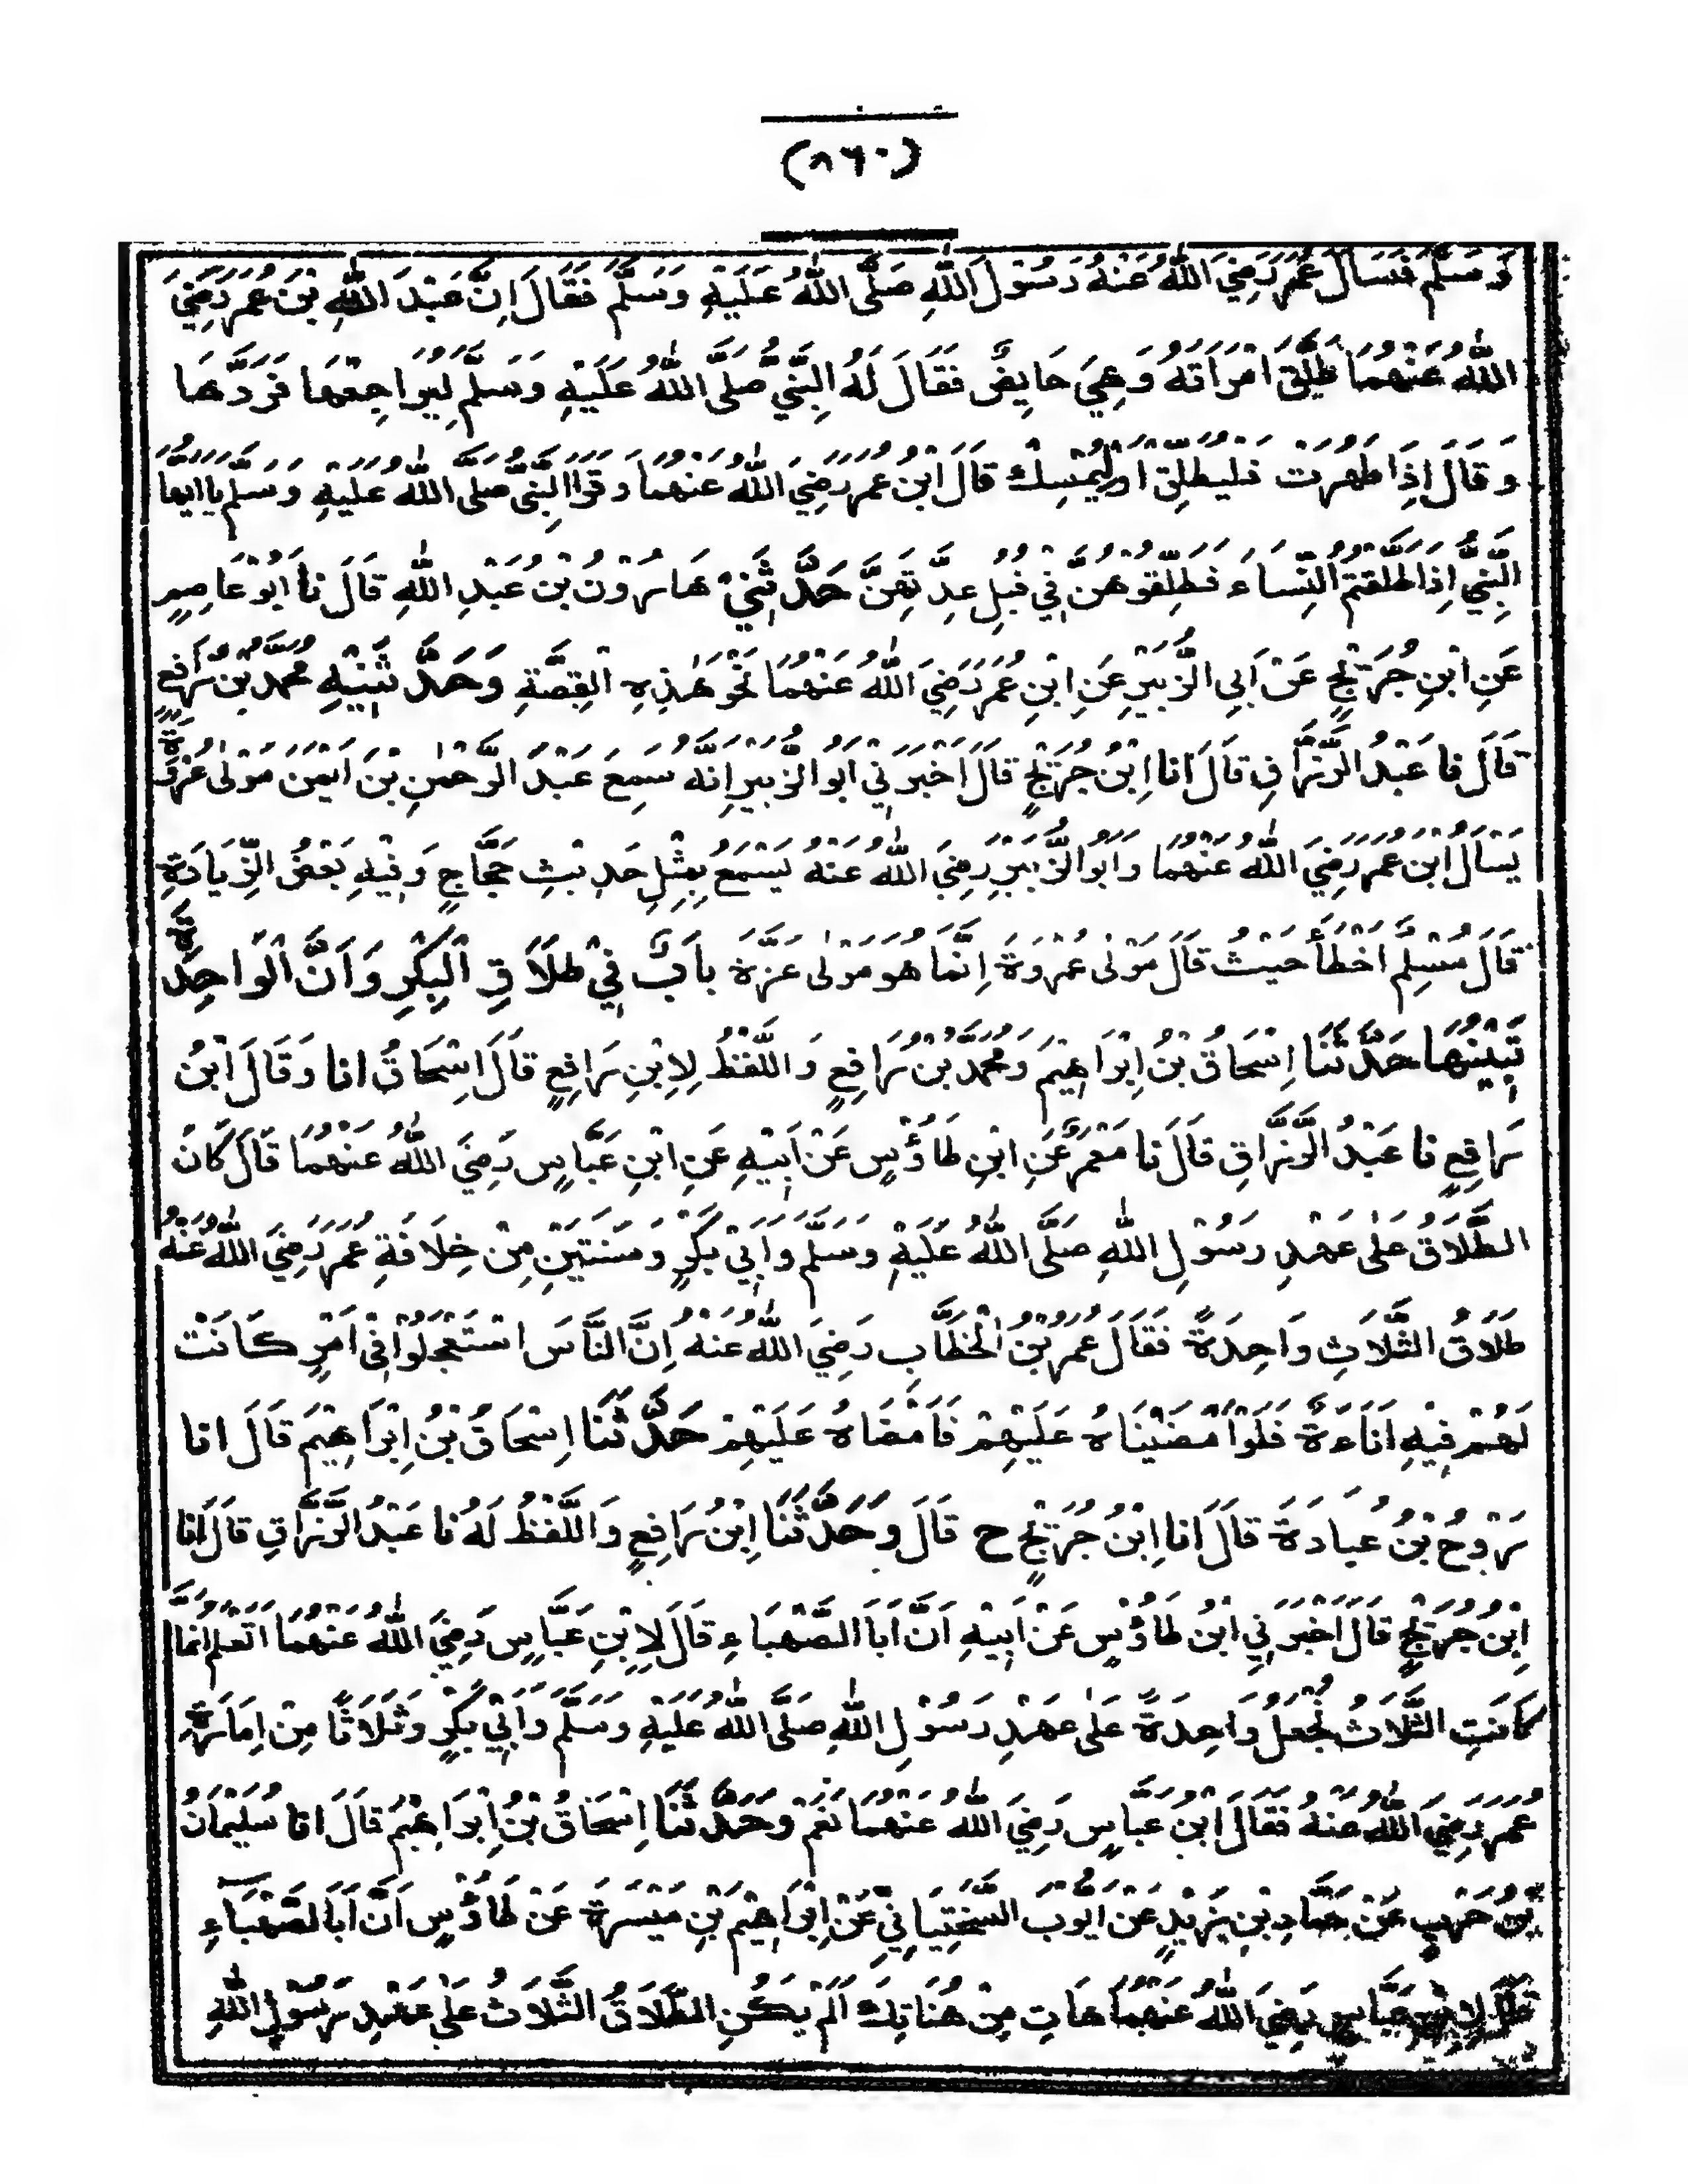 (٨٦٠)
وَسَلَّمَ فَسَأَلَ عُمَرُ رَضِيَ اللّٰهُ عَنْهُ رَسُوْلَ اللّٰهِ صَلَّى اللّٰهُ عَلَيْهِ وَسَلَّمَ فَقَالَ اِنَّ عَبْدَ اللّٰهِ بْنَ عُمَرَ رَضِيَ
اللّٰهُ عَنْهُمَا طَلَّقَ امْرَاَتَهُ وَهِيَ حَايِضٌ فَقَالَ لَهُ النَّبِيُّ صَلَّى اللّٰهُ عَلَيْهِ وَسَلَّمَ لِيُرَاجِعْهَا فَرَدَّهَا
وَقَالَ اِذَا طَهُرَتْ فَلْيُطَلِّقْ اَوْ لِيُمْسِكْ قَالَ ابْنُ عُمَرَ رَضِيَ اللّٰهُ عَنْهُمَا وَقَرَاَ النَّبِيُّ صَلَّى اللّٰهُ عَلَيْهِ وَسَلَّمَ يَا اَيُّهَا
النَّبِيُّ اِذَا طَلَّقْتُمُ النِّسَاءَ فَطَلِّقُوْهُنَّ فِي قُبُلِ عِدَّتِهِنَّ حَدَّثَنِيْ هَارُوْنُ بْنُ عَبْدِ اللّٰهِ قَالَ نَا اَبُوْ عَاصِمٍ
عَنِ ابْنِ جُرَيْجٍ عَنْ اَبِي الزُّبَيْرِ عَنِ ابْنِ عُمَرَ رَضِيَ اللّٰهُ عَنْهُمَا نَحْوَ هٰذِهِ الْقِصَّةِ وَحَدَّثَنِيْهِ مُحَمَّدُ بْنُ رَافِعٍ
قَالَ نَا عَبْدُ الرَّزَّاقِ قَالَ اَنَا ابْنُ جُرَيْجٍ قَالَ اَخْبَرَنِي اَبُو الزُّبَيْرِ اَنَّهُ سَمِعَ عَبْدَ الرَّحْمٰنِ بْنَ اَيْمَنَ مَوْلٰى عُرْوَةَ
يَسْاَلُ ابْنَ عُمَرَ رَضِيَ اللّٰهُ عَنْهُمَا وَاَبُو الزُّبَيْرِ رَضِيَ اللّٰهُ عَنْهُ يَسْمَعُ بِمِثْلِ حَدِيْثِ حَجَّاجٍ وَفِيْهِ بَعْضُ الزِّيَادَةِ
قَالَ مُسْلِمٌ اَخْطَأَ حَيْثُ قَالَ مَوْلٰى عُرْوَةَ اِنَّمَا هُوَ مَوْلٰى عَزَّةَ بَابٌ فِيْ طَلَاقِ الْبِكْرِ وَاَنَّ الْوَاحِدَةَ
تُبِيْنُهَا حَدَّثَنَا اِسْحَاقُ بْنُ اِبْرَاهِيْمَ وَمُحَمَّدُ بْنُ رَافِعٍ وَاللَّفْظُ لِابْنِ رَافِعٍ قَالَ اِسْحَاقُ اَنَا وَقَالَ ابْنُ
رَافِعٍ نَا عَبْدُ الرَّزَّاقِ قَالَ نَا مَعْمَرٌ عَنِ ابْنِ طَاوُسٍ عَنْ اَبِيْهِ عَنِ ابْنِ عَبَّاسٍ رَضِيَ اللّٰهُ عَنْهُمَا قَالَ كَانَ
الطَّلَاقُ عَلٰى عَهْدِ رَسُوْلِ اللّٰهِ صَلَّى اللّٰهُ عَلَيْهِ وَسَلَّمَ وَاَبِيْ بَكْرٍ وَسَنَتَيْنِ مِنْ خِلَافَةِ عُمَرَ رَضِيَ اللّٰهُ عَنْهُ
طَلَاقُ الثَّلَاثِ وَاحِدَةً فَقَالَ عُمَرُ بْنُ الْخَطَّابِ رَضِيَ اللّٰهُ عَنْهُ اِنَّ النَّاسَ اسْتَعْجَلُوْا فِيْ اَمْرٍ كَانَتْ
لَهُمْ فِيْهِ اَنَاءَةٌ فَلَوْ اَمْضَيْنَاهُ عَلَيْهِمْ فَاَمْضَاهُ عَلَيْهِمْ حَدَّثَنَا اِسْحَاقُ بْنُ اِبْرَاهِيْمَ قَالَ اَنَا
رَوْحُ بْنُ عُبَادَةَ قَالَ اَنَا ابْنُ جُرَيْجٍ ح قَالَ وَحَدَّثَنَا ابْنُ رَافِعٍ وَاللَّفْظُ لَهُ نَا عَبْدُ الرَّزَّاقِ قَالَ اَنَا
ابْنُ جُرَيْجٍ قَالَ اَخْبَرَنِي ابْنُ طَاوُسٍ عَنْ اَبِيْهِ اَنَّ اَبَا الصَّهْبَاءِ قَالَ لِابْنِ عَبَّاسٍ رَضِيَ اللّٰهُ عَنْهُمَا اَتَعْلَمُ اَنَّمَا
كَانَتِ الثَّلَاثُ تُجْعَلُ وَاحِدَةً عَلٰى عَهْدِ رَسُوْلِ اللّٰهِ صَلَّى اللّٰهُ عَلَيْهِ وَسَلَّمَ وَاَبِيْ بَكْرٍ وَثَلَاثًا مِنْ اِمَارَةِ
عُمَرَ رَضِيَ اللّٰهُ عَنْهُ فَقَالَ ابْنُ عَبَّاسٍ رَضِيَ اللّٰهُ عَنْهُمَا نَعَمْ وَحَدَّثَنَا اِسْحَاقُ بْنُ اِبْرَاهِيْمَ قَالَ اَنَا سُلَيْمَانُ
بْنُ حَرْبٍ عَنْ حَمَّادِ بْنِ يَزِيْدٍ عَنْ اَيُّوْبَ السَّخْتِيَانِيِّ عَنْ اِبْرَاهِيْمَ بْنِ مَيْسَرَةَ عَنْ طَاوُسٍ اَنَّ اَبَا الصَّهْبَاءِ
قَالَ لِابْنِ عَبَّاسٍ رَضِيَ اللّٰهُ عَنْهُمَا هَاتِ مِنْ هُنَاتِكَ اَلَمْ يَكُنِ الطَّلَاقُ الثَّلَاثُ عَلٰى عَهْدِ رَسُوْلِ اللّٰهِ